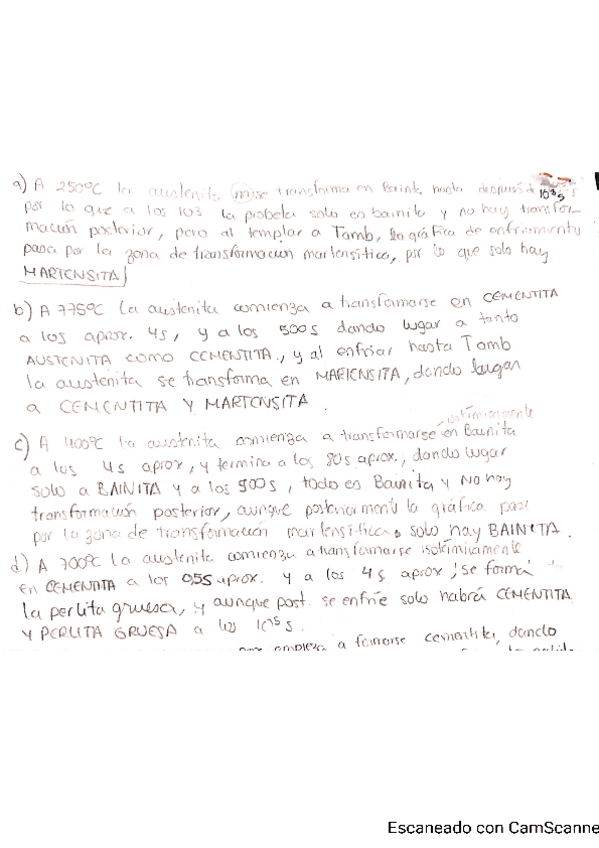 a) A 250ºC la austenita no se transforma en Bainita hasta después de 10³s
por lo que a los 103 la probeta solo en bainita y no hay transfor-
mación posterior, pero al templar a Tamb, la gráfica de enfriamiento
pasa por la zona de transformación martensítica, por lo que solo hay
MARTENSITA
b) A 775ºC la austenita comienza a transformarse en CEMENTITA
a los aprox. 4s, y a los 500s dando lugar a tanto
AUSTENITA como CEMENTITA, y al enfriar hasta Tamb
la austenita se transforma en MARTENSITA, dando lugar
a CEMENTITA Y MARTENSITA.
isotérmicamente
c) A 400ºC la austenita comienza a transformarse en Bainita
a los 4s aprox, y termina a los 80s aprox, dando lugar
solo a BAINITA y a los 500s, todo es Bainita y No hay
transformación posterior, aunque posteriormente la gráfica pase
por la zona de transformación martensítica, solo hay BAINITA.
d) A 700ºC la austenita comienza a transformarse isotérmicamente
en CEMENTITA a los 0,5s aprox. y a los 4s aprox, se forma
la perlita gruesa, y aunque post. se enfríe solo habrá CEMENTITA
Y PERLITA GRUESA a los 10⁵s.
empieza a formarse cementita, dando
Escaneado con CamScanne